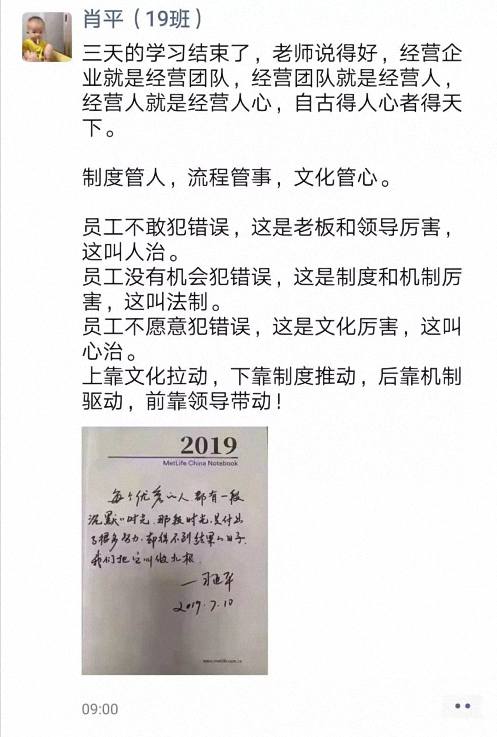 肖平（19班）
三天的学习结束了，老师说得好，经营企
业就是经营团队，经营团队就是经营人，
经营人就是经营人心，自古得人心者得天
下。
制度管人，流程管事，文化管心。
员工不敢犯错误，这是老板和领导厉害，
这叫人治。
员工没有机会犯错误，这是制度和机制厉
害，这叫法制。
员工不愿意犯错误，这是文化厉害，这叫
心治。
上靠文化拉动，下靠制度推动，后靠机制
驱动，前靠领导带动！
2019
MetLife China Notebook
每个优秀的人都有一段
沉默的时光。那段时光，是付出
了很多努力，却得不到结果的日子，
我们把它叫做扎根。
2019.7.10
www.metlife.com.cn
09:00